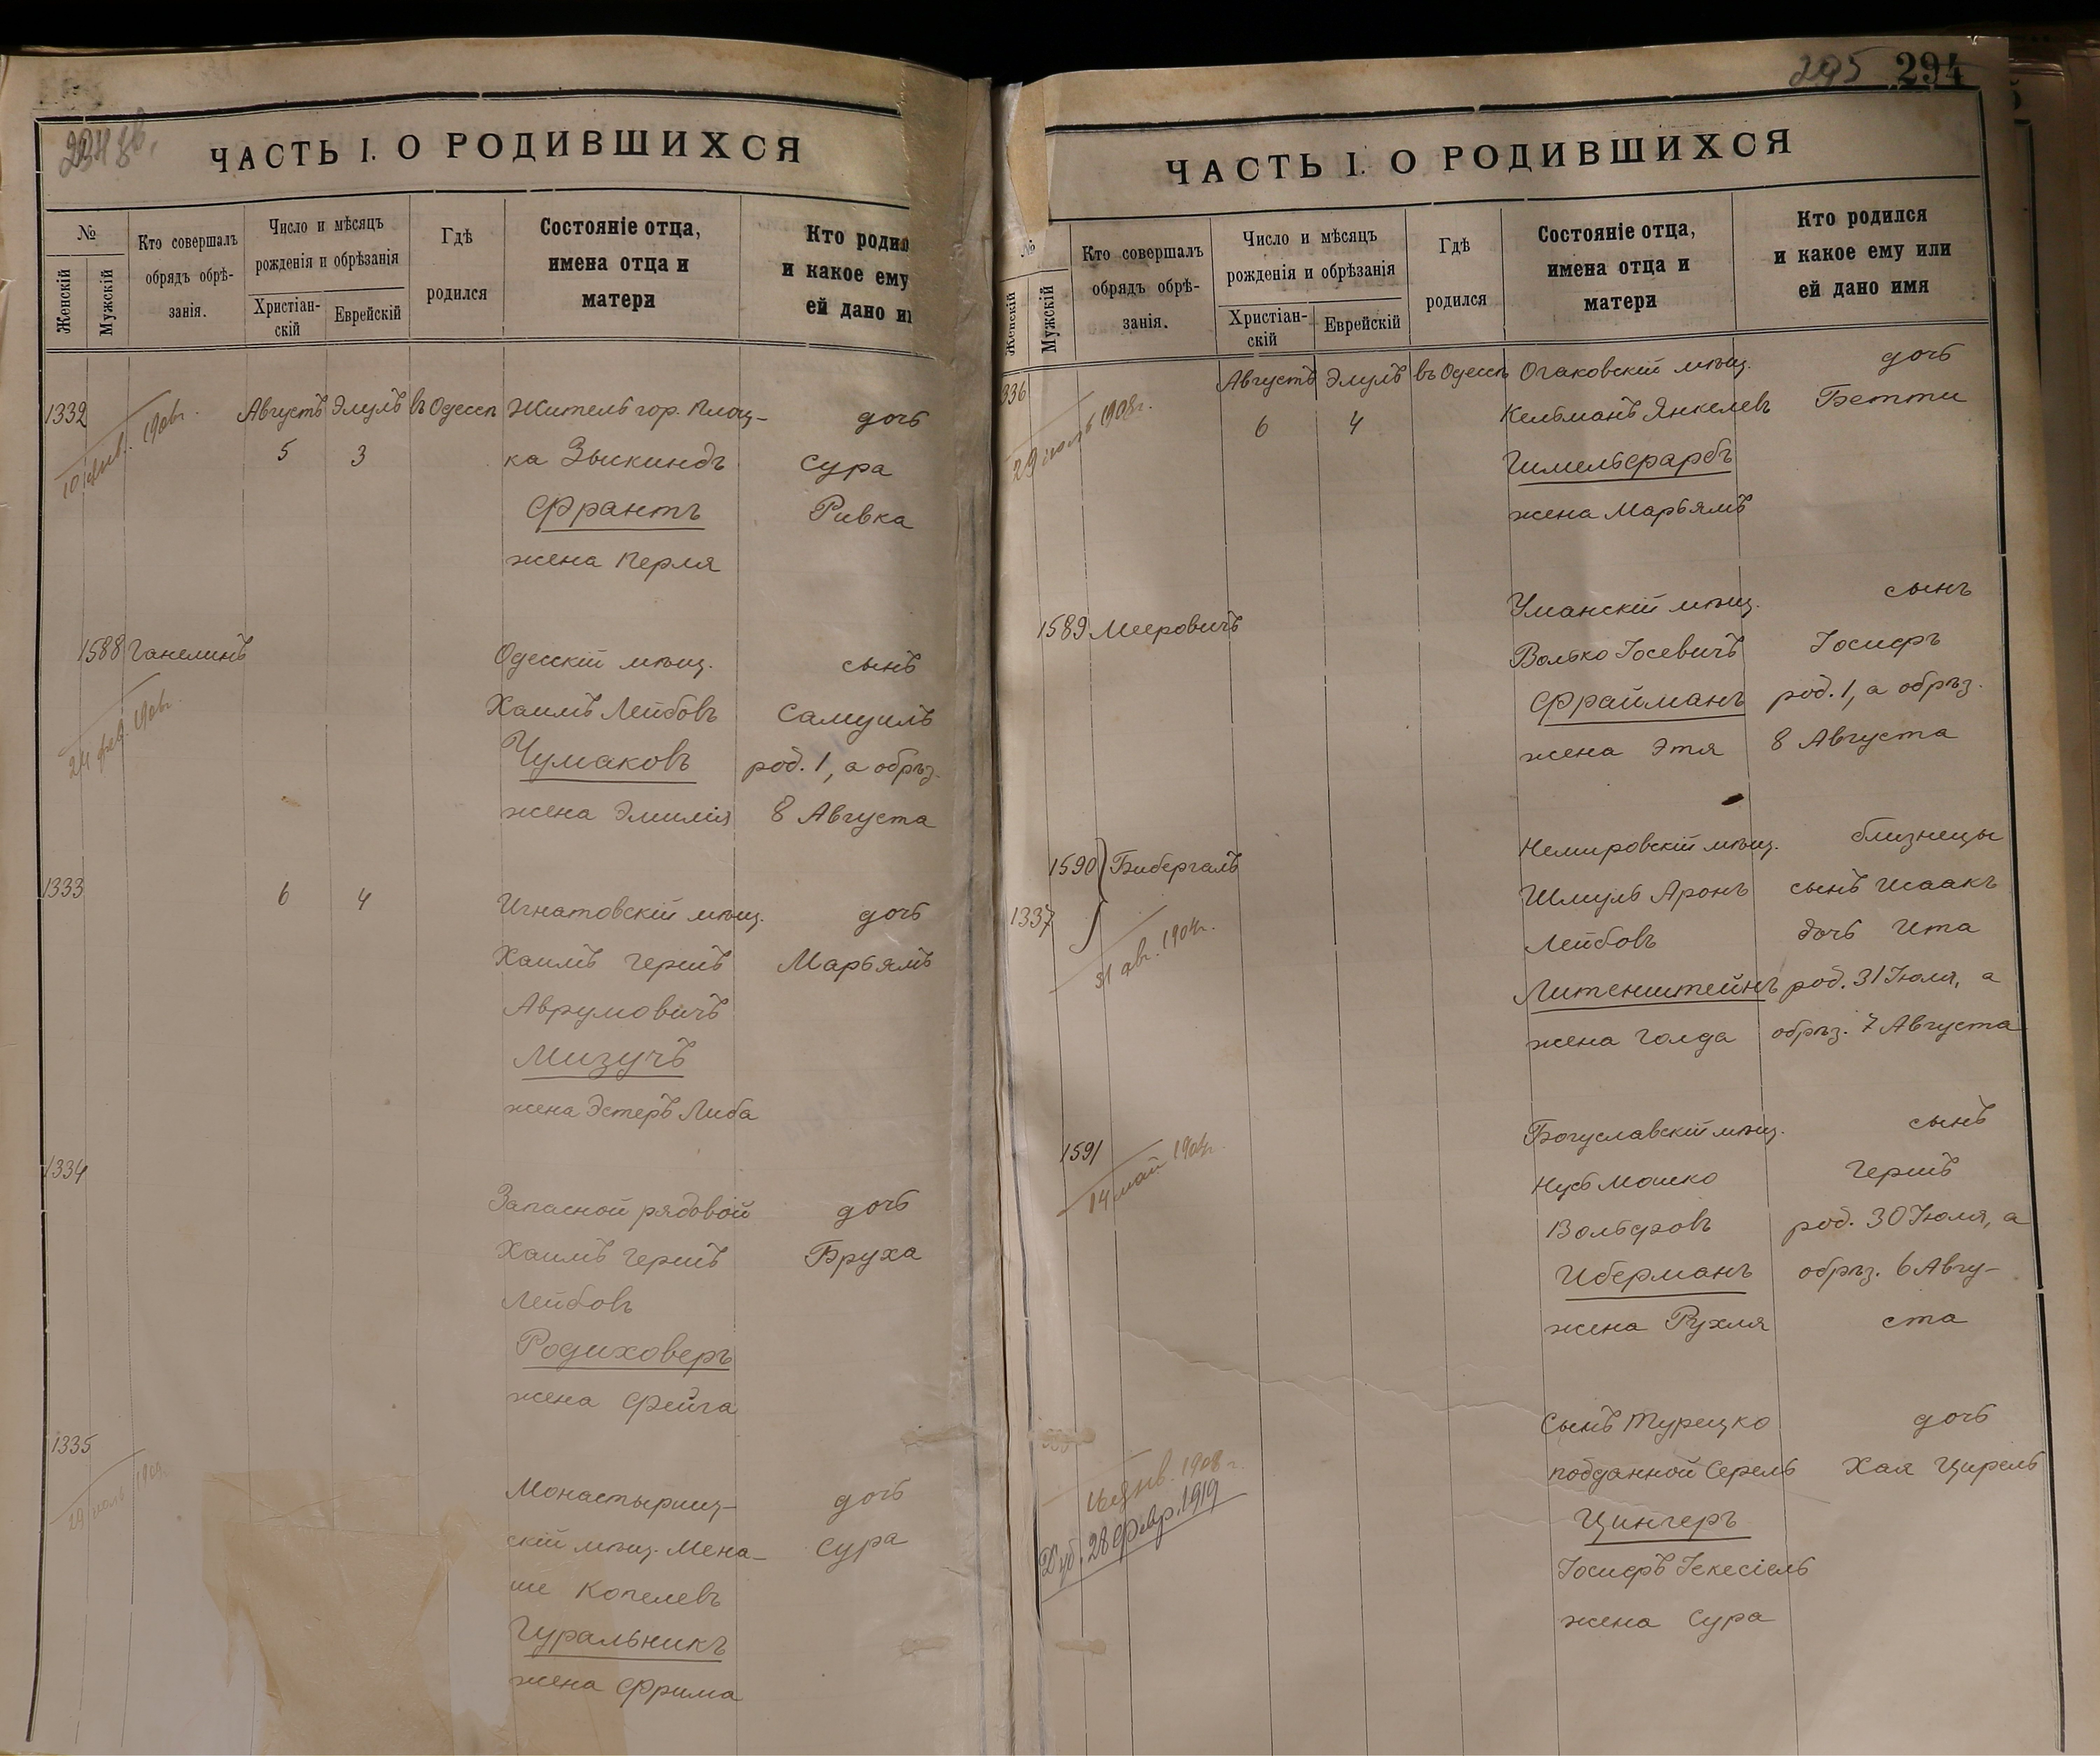 ЧАСТЬ I. О РОДИВШИХСЯ
№
Женскій
Мужскій
Кто совершалъ
обрядъ обрѣ-
занія.
Число и мѣсяцъ
рожденія и обрѣзанія
Христіан-
скій
Еврейскій
Гдѣ
родился
Состояніе отца,
имена отца и
матери
Кто родил
и какое ему
ей дано и
1332
10 янв. 1906г.
Августъ Элулъ въ Одессѣ
5 3
Житель гор. Плоц-
ка Зыскиндъ
Франтъ
жена Перля
дочь
Сура
Ривка
1588 Ганелинъ
24 фев. 190
Одесскій мѣщ.
Хаимъ Лейбовъ
Чумаковъ
жена Эмилія
сынъ
Самуилъ
род. 1, а обрѣз.
8 Августа
1333
6 4
Игнатовскій мѣщ.
Хаимъ Гершъ
Аврумовичъ
Мизучъ
жена Эстеръ Либа
дочь
Марьямъ
1334
Запасной рядовой
Хаимъ Гершъ
Лейбовъ
Родиховеръ
жена Фейга
дочь
Бруха
1335
Монастырищ-
скій мѣщ. Мена-
ше Копелевъ
Гуральникъ
жена Фрима
дочь
Сура
295 294
ЧАСТЬ I. О РОДИВШИХСЯ
№
Женскій
Мужскій
Кто совершалъ
обрядъ обрѣ-
занія.
Число и мѣсяцъ
рожденія и обрѣзанія
Христіан-
скій
Еврейскій
Гдѣ
родился
Состояніе отца,
имена отца и
матери
Кто родился
и какое ему или
ей дано имя
336
1908г.
Августъ Элулъ въ Одессѣ
6 4
Очаковскій мѣщ.
Кельманъ Янкелевъ
Гимельфарбъ
жена Марьямъ
дочь
Бетти
1589 Мееровичъ
Уманскій мѣщ.
Волько Іосевичъ
Фрайманъ
жена Этя
сынъ
Іосифъ
род. 1, а обрѣз.
8 Августа
1590 Бибергалъ
1337
31 авг. 1904г.
Немировскій мѣщ.
Шмуль Аронъ
Лейбовъ
Литенштейнъ
жена Голда
близнецы
сынъ Исаакъ
дочь Ита
род. 31 Іюля, а
обрѣз. 7 Августа
1591
14 май 1904г.
Богуславскій мѣщ.
Нусь Мошко
Вольфовъ
Иберманъ
жена Рухля
сынъ
Гершъ
род. 30 Іюля, а
обрѣз. 6 Авгу-
ста
янв. 1908г.
Дуб. 28 Февр. 1919
Сынъ Турецко
подданной Серель
Цингеръ
Іосифъ Іекесіель
жена Сура
дочь
Хая Цирель